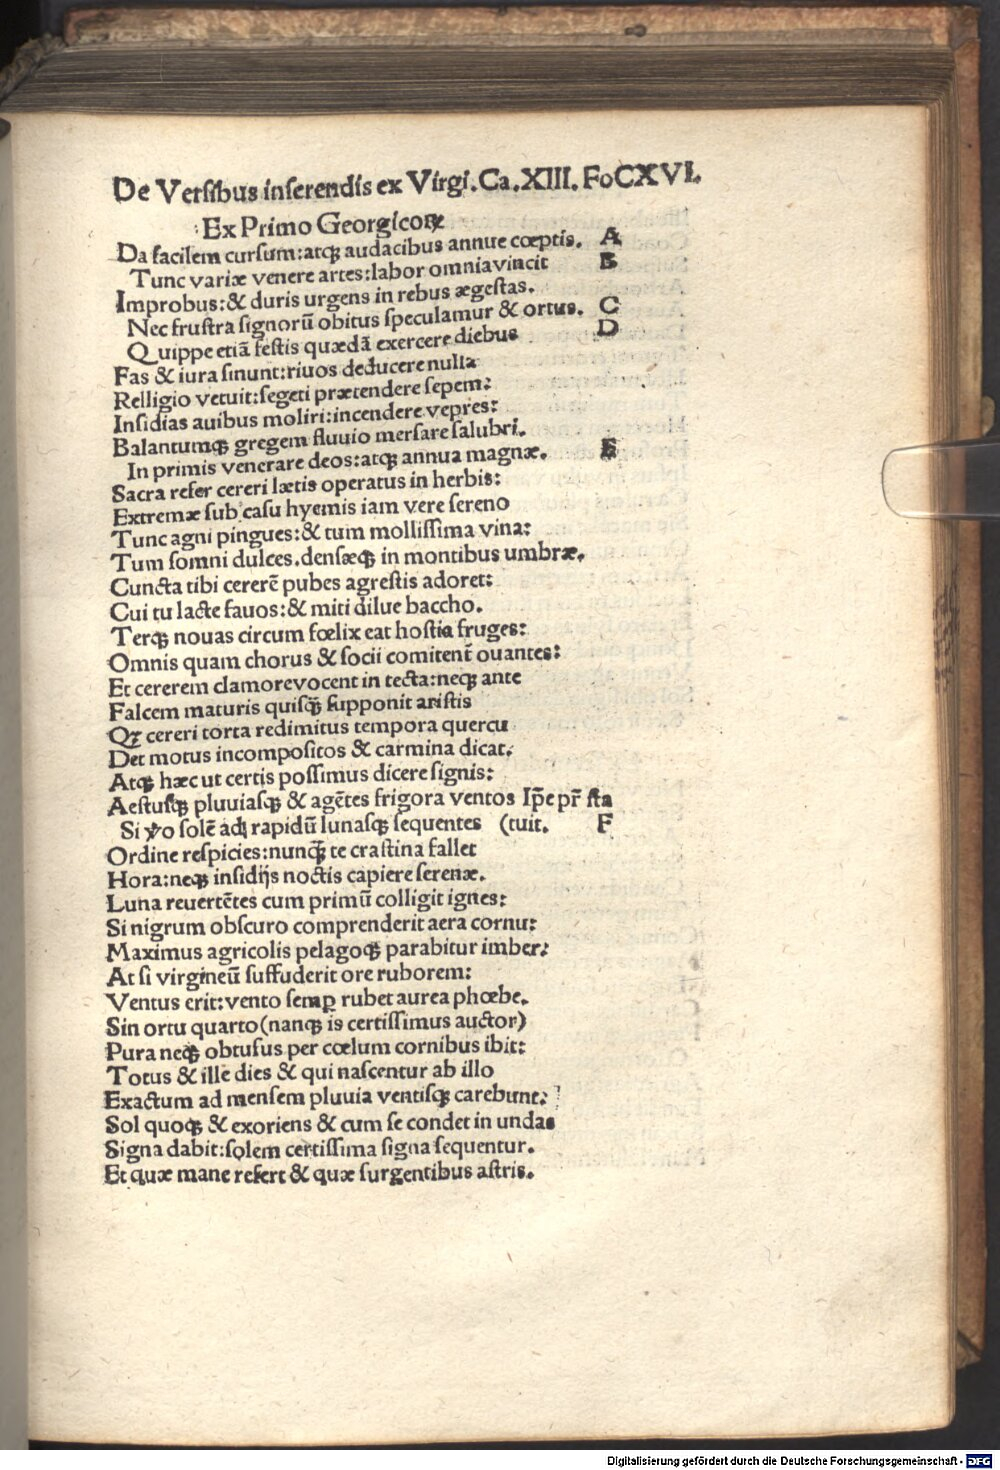 De Versibus inserendis ex Virgi. Ca. XIII. Fo CXVI.
Ex Primo Georgicoꝝ
Da facilem cursum: atqꝫ audacibus annue cœptis. A
Tunc variæ venere artes: labor omnia vincit B
Improbus: & duris urgens in rebus ægestas.
Nec frustra signorū obitus speculamur & ortus. C
Quippe etiā festis quædā exercere diebus D
Fas & iura sinunt: riuos deducere nulla
Relligio vetuit: segeti prætendere sepem:
Insidias auibus moliri: incendere vepres:
Balantumqꝫ gregem fluuio mersare salubri.
In primis venerare deos: atqꝫ annua magnæ. E
Sacra refer cereri lætis operatus in herbis:
Extremæ sub casu hyemis iam vere sereno
Tunc agni pingues: & tum mollissima vina:
Tum somni dulces. densæqꝫ in montibus umbræ.
Cuncta tibi cererē pubes agrestis adoret:
Cui tu lacte fauos: & miti dilue baccho.
Terqꝫ nouas circum fœlix eat hostia fruges:
Omnis quam chorus & socii comitent̄ ouantes:
Et cererem clamore vocent in tecta: neqꝫ ante
Falcem maturis quisqꝫ̄ supponit aristis
Qꝫ cereri torta redimitus tempora quercu
Det motus incompositos & carmina dicat.
Atqꝫ hæc ut certis possimus dicere signis:
Aestusqꝫ pluuiasqꝫ & agētes frigora ventos Ip̄e pr̄ sta
Si ꝟo solē ad rapidū lunasqꝫ sequentes (tuit. F
Ordine respicies: nunqꝫ̄ te crastina fallet
Hora: neqꝫ insidijs noctis capiere serenæ.
Luna reuertētes cum primū colligit ignes:
Si nigrum obscuro comprenderit aera cornu:
Maximus agricolis pelagoqꝫ parabitur imber:
At si virgineū suffuderit ore ruborem:
Ventus erit: vento semꝑ rubet aurea phœbe.
Sin ortu quarto (nanqꝫ is certissimus auctor)
Pura neqꝫ obtusus per cœlum cornibus ibit:
Totus & ille dies & qui nascentur ab illo
Exactum ad mensem pluuia ventisqꝫ carebunt:
Sol quoqꝫ & exoriens & cum se condet in undas
Signa dabit: solem certissima signa sequentur.
Et quæ mane refert & quæ surgentibus astris.
Digitalisierung gefördert durch die Deutsche Forschungsgemeinschaft - DFG